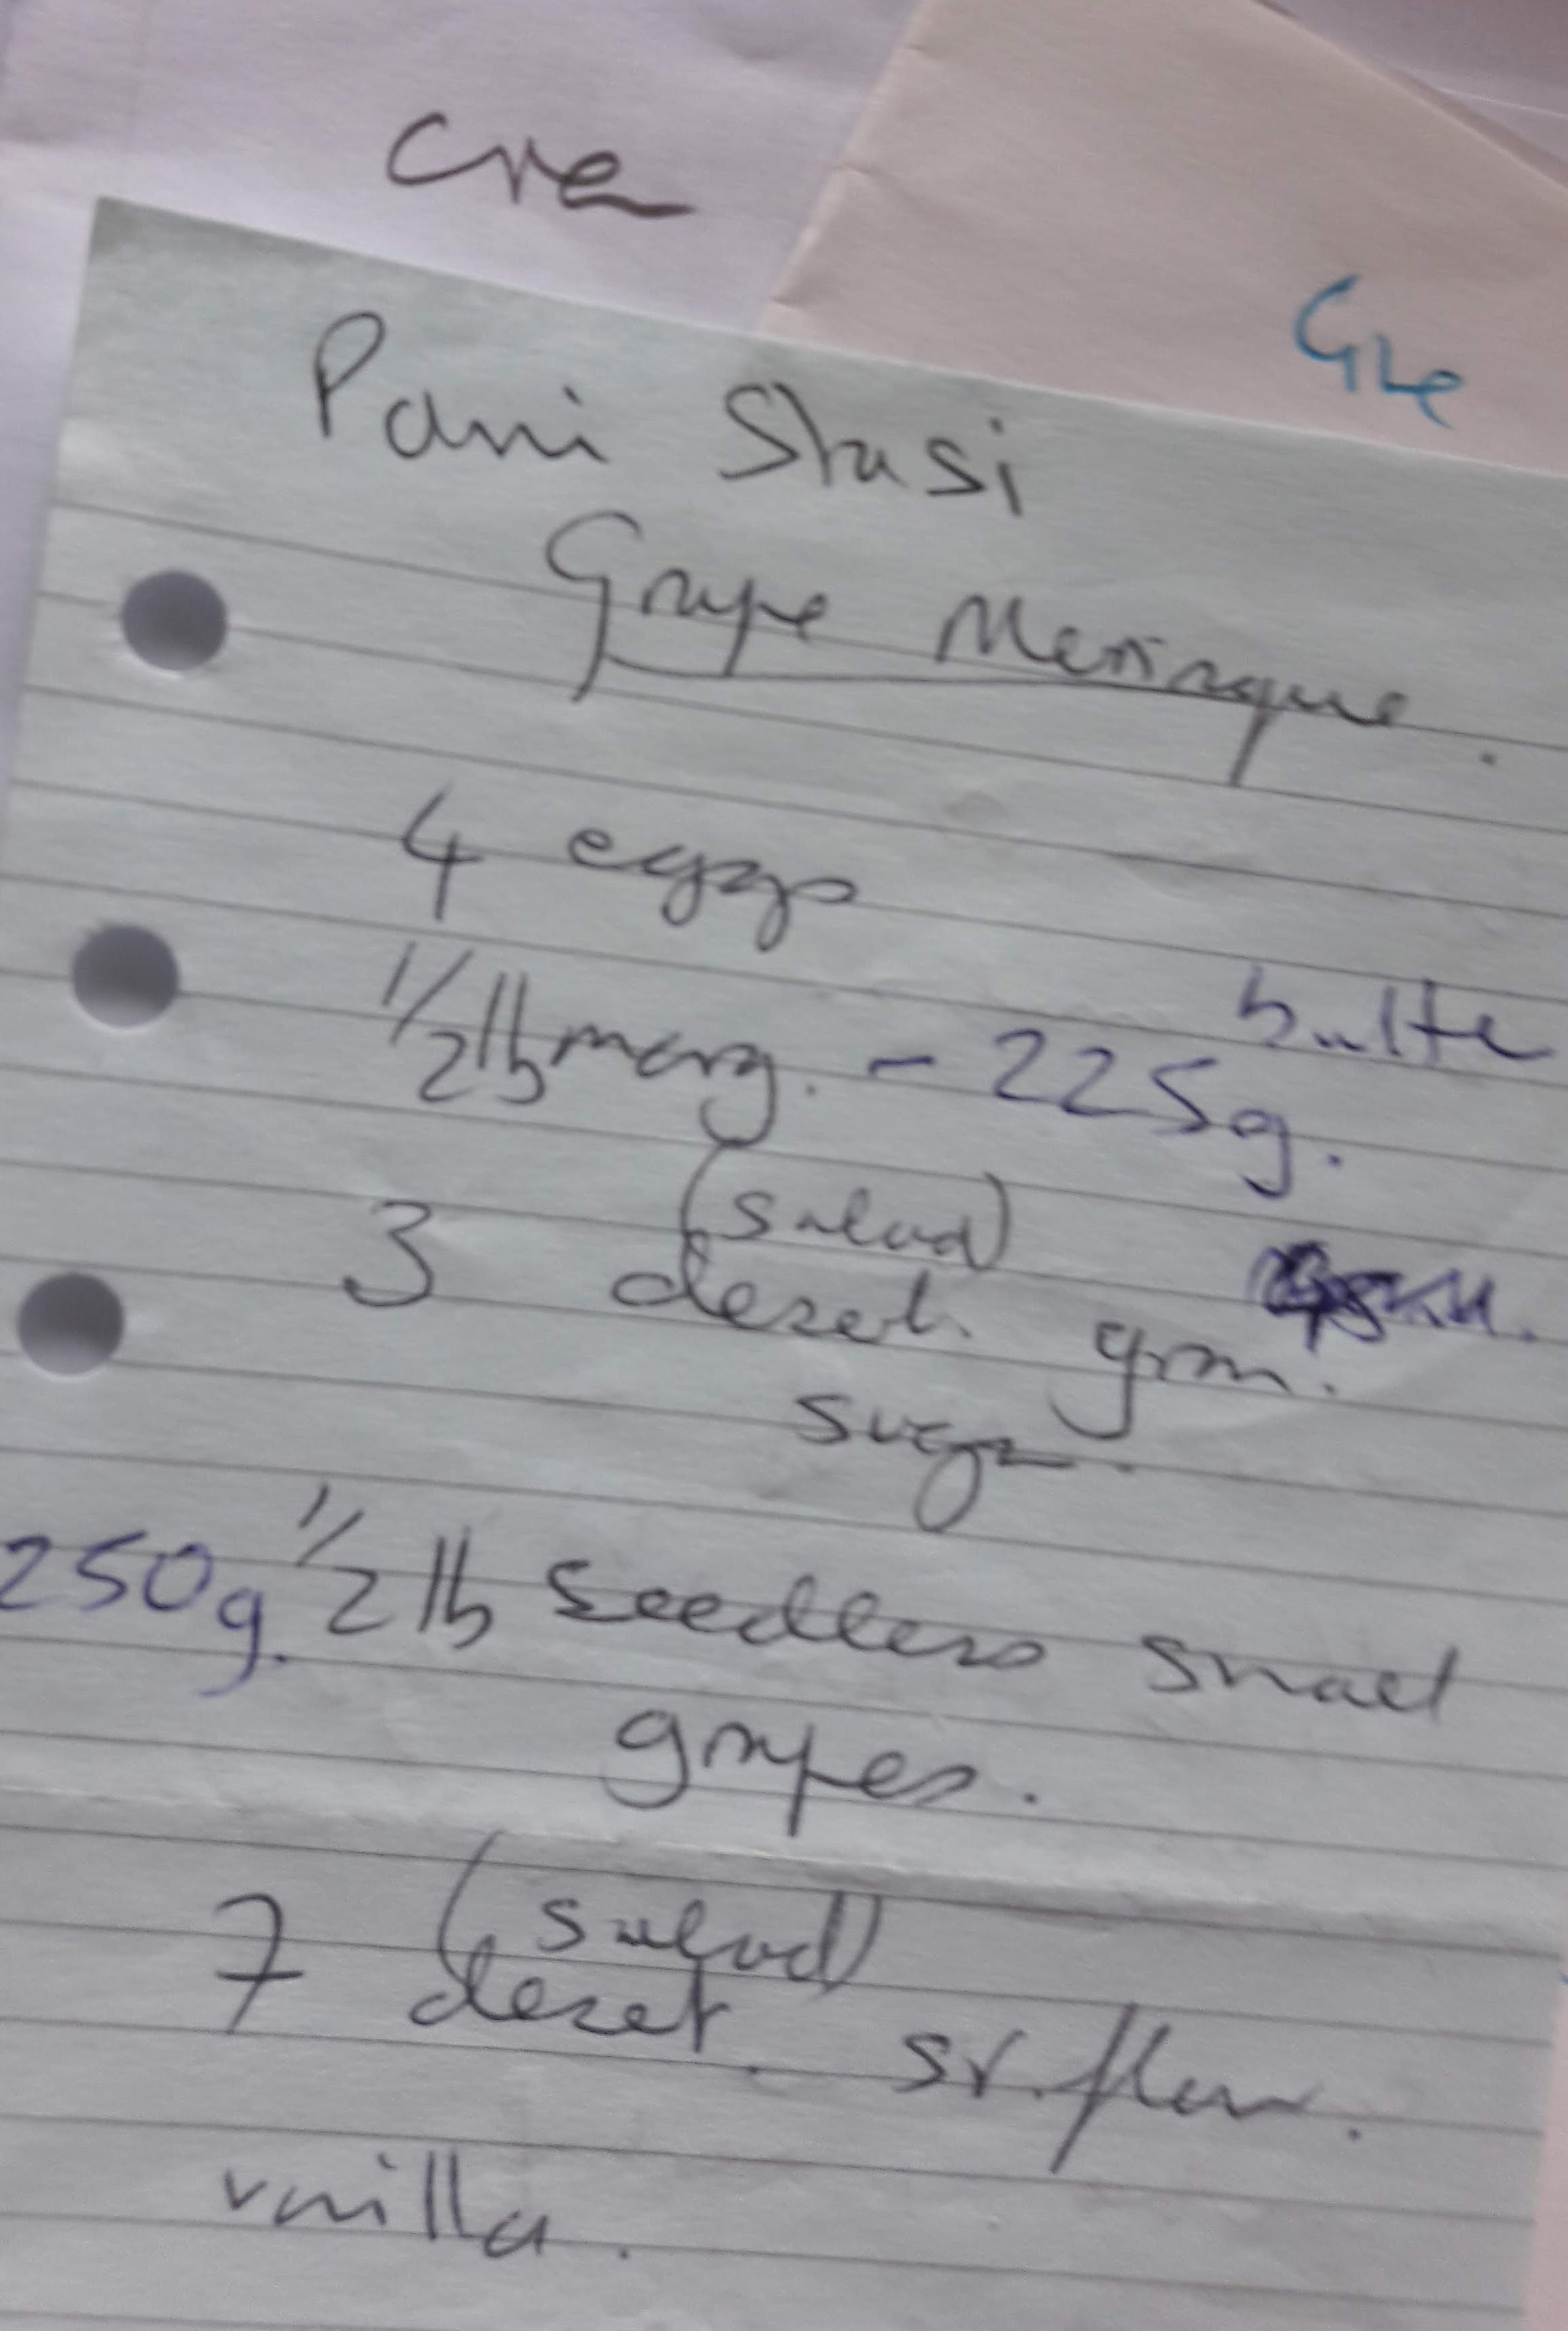 Cre
Gre
Pani Stasi
Grape Meringue.
4 eggs
butte
1/2 lb marg. - 225g.
(salad)
3 desert. gran.
sugar.
250g. 1/2 lb seedless small
grapes.
(salad)
7 desert. s r. flour.
vanilla.